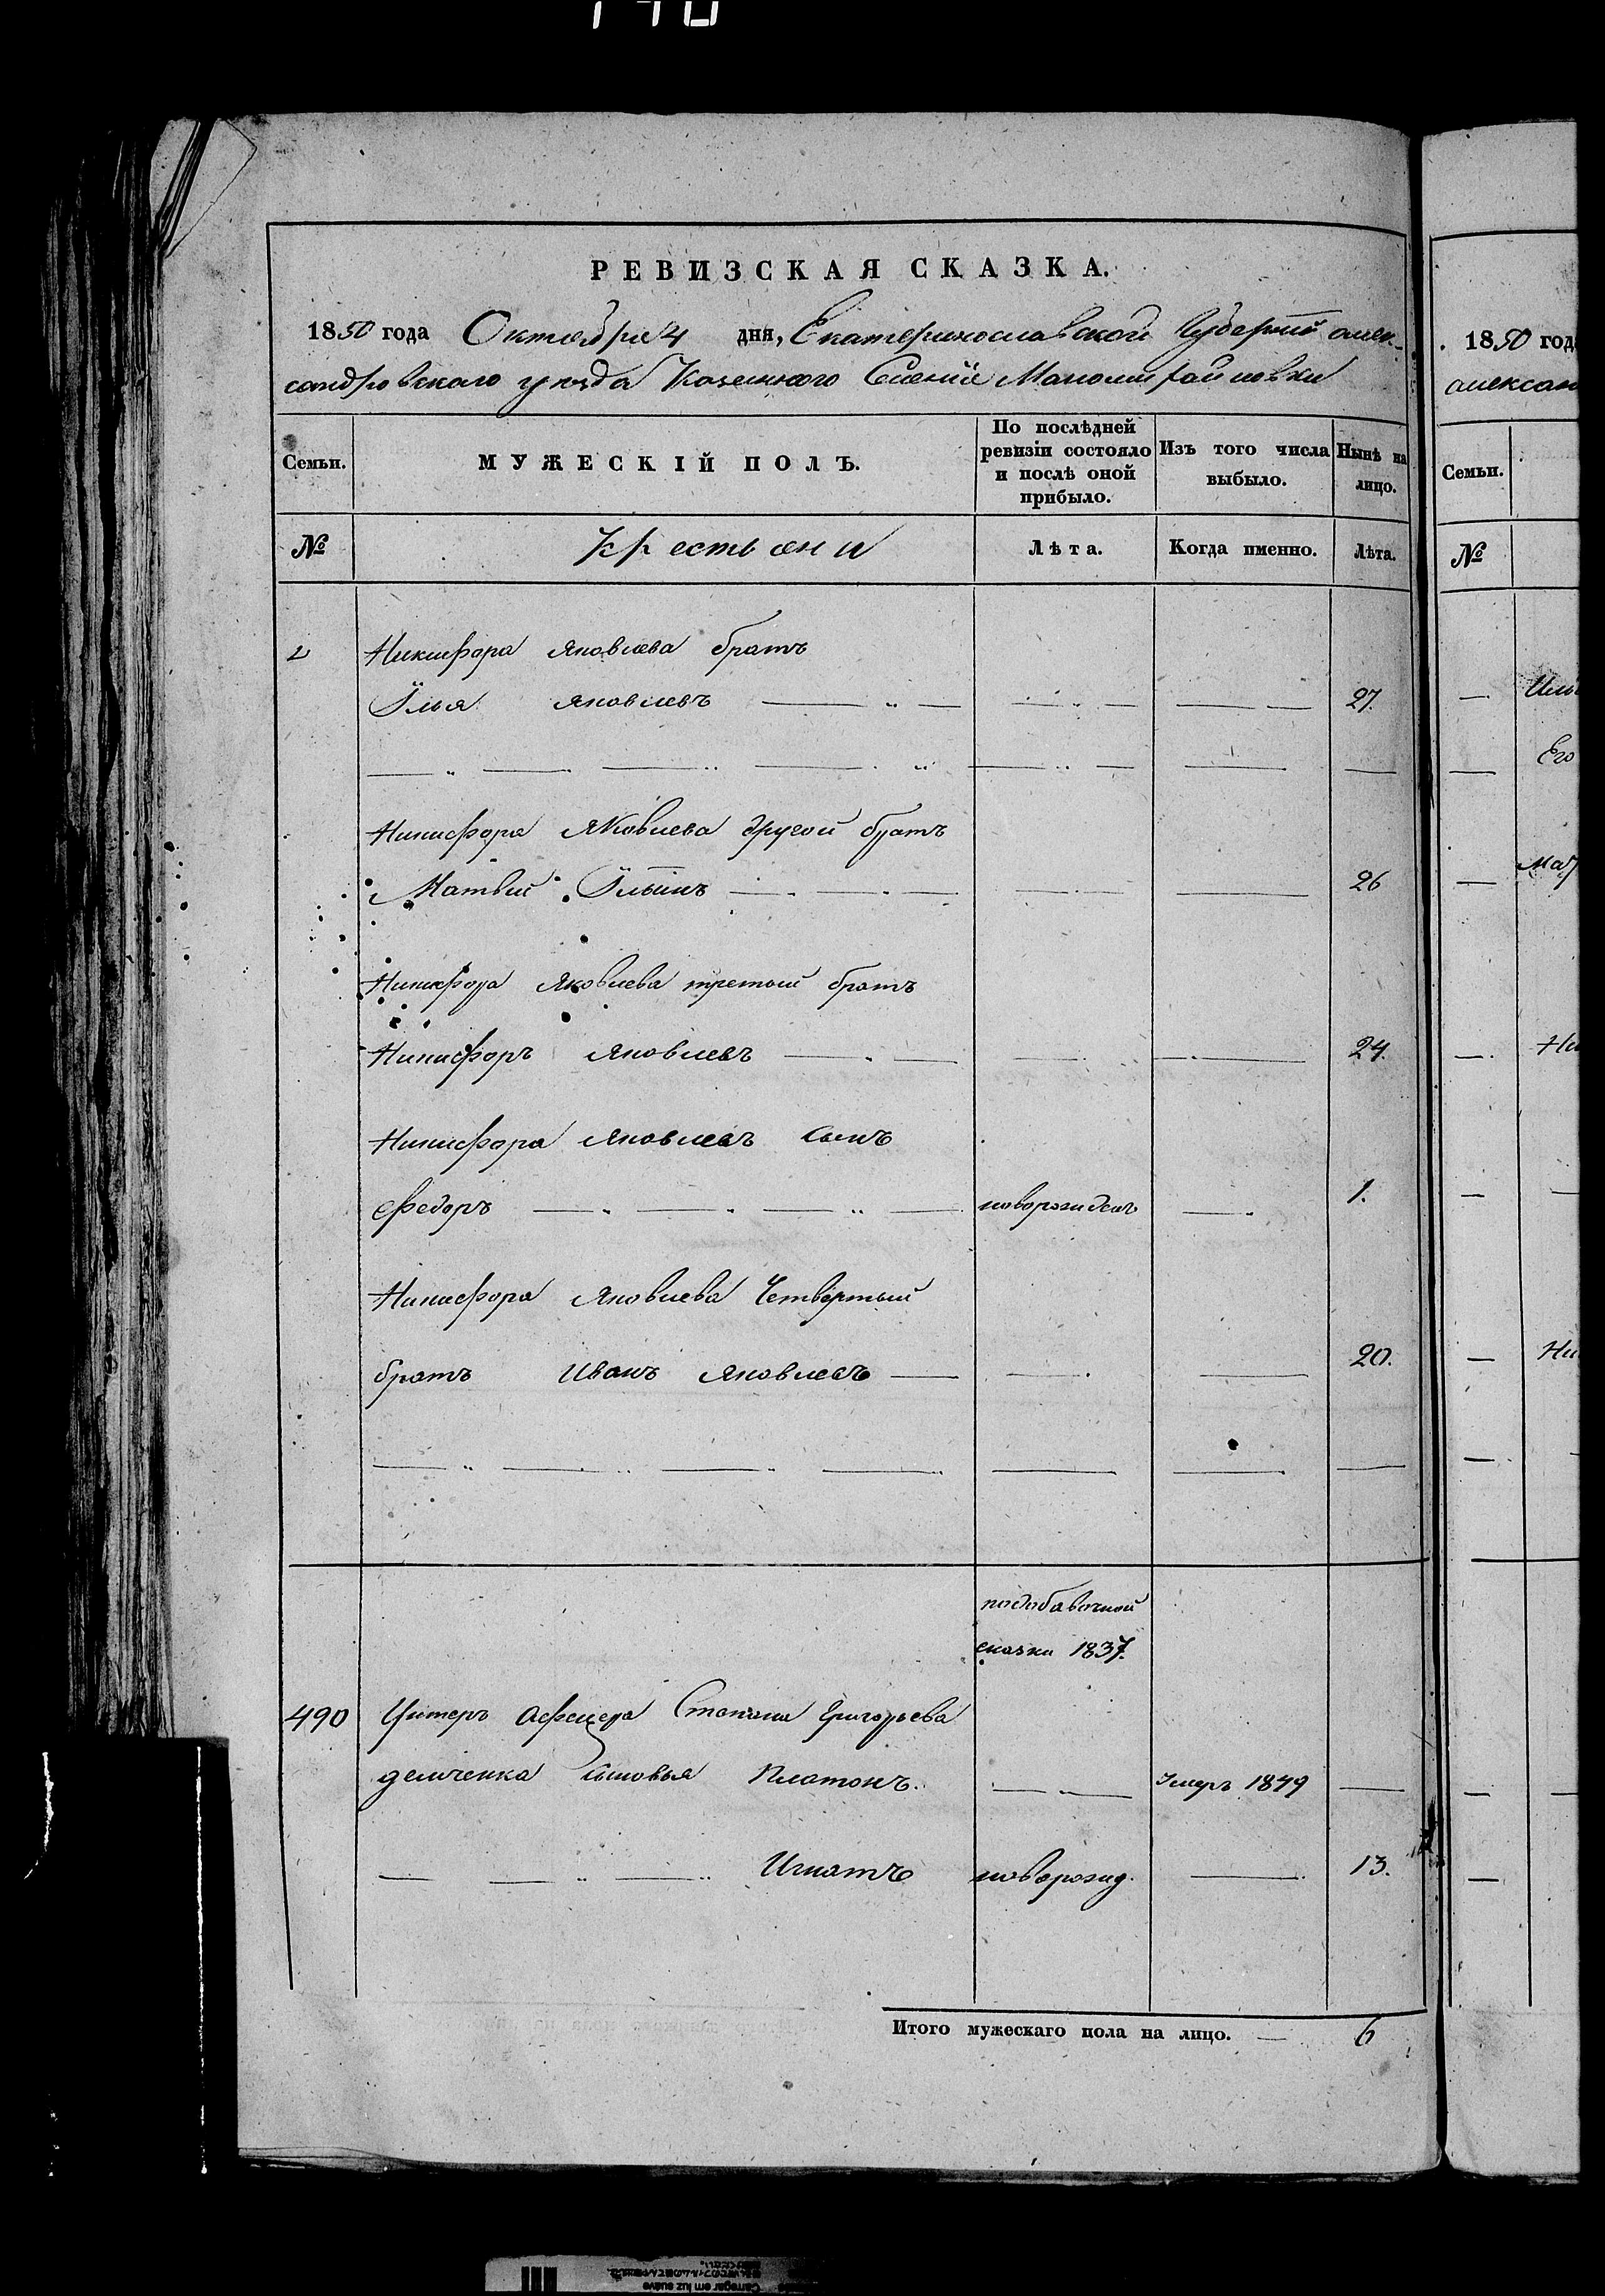 РЕВИЗСКАЯ СКАЗКА.
1850 года Октября 4 дня, Екатеринославской Губернии алек-
сандровскаго уезда Казенного Селения Малоимихайловки
Семьи.
МУЖЕСКІЙ ПОЛЪ.
По послѣдней
ревизіи состояло
и послѣ оной
прибыло.
Изъ того числа
выбыло.
Нынѣ на
лицо.
№
крестьяни
Лѣта.
Когда именно.
Лѣта.
Никифора Яковлева братъ
Илья Яковлевъ 27.
Никифора Яковлева другой братъ
Матвий Ильинъ 26
Никифора Яковлева третьий братъ
Никифоръ Яковлевъ 24.
Никифора Яковлевъ сынъ
Федоръ новорожденъ 1.
Никифора Яковлева Четвертый
братъ Иванъ Яковлевъ 20.
подобавочной
сказки 1837.
490 Унтеръ афицера Степана Григорьева
демченка сыновья Платонъ. Умеръ 1849
Игнатъ новорожд. 13.
Итого мужескаго пола на лицо. 6
1850 год
алексан
Семьи.
№
Иль
Его
Ни
Ни